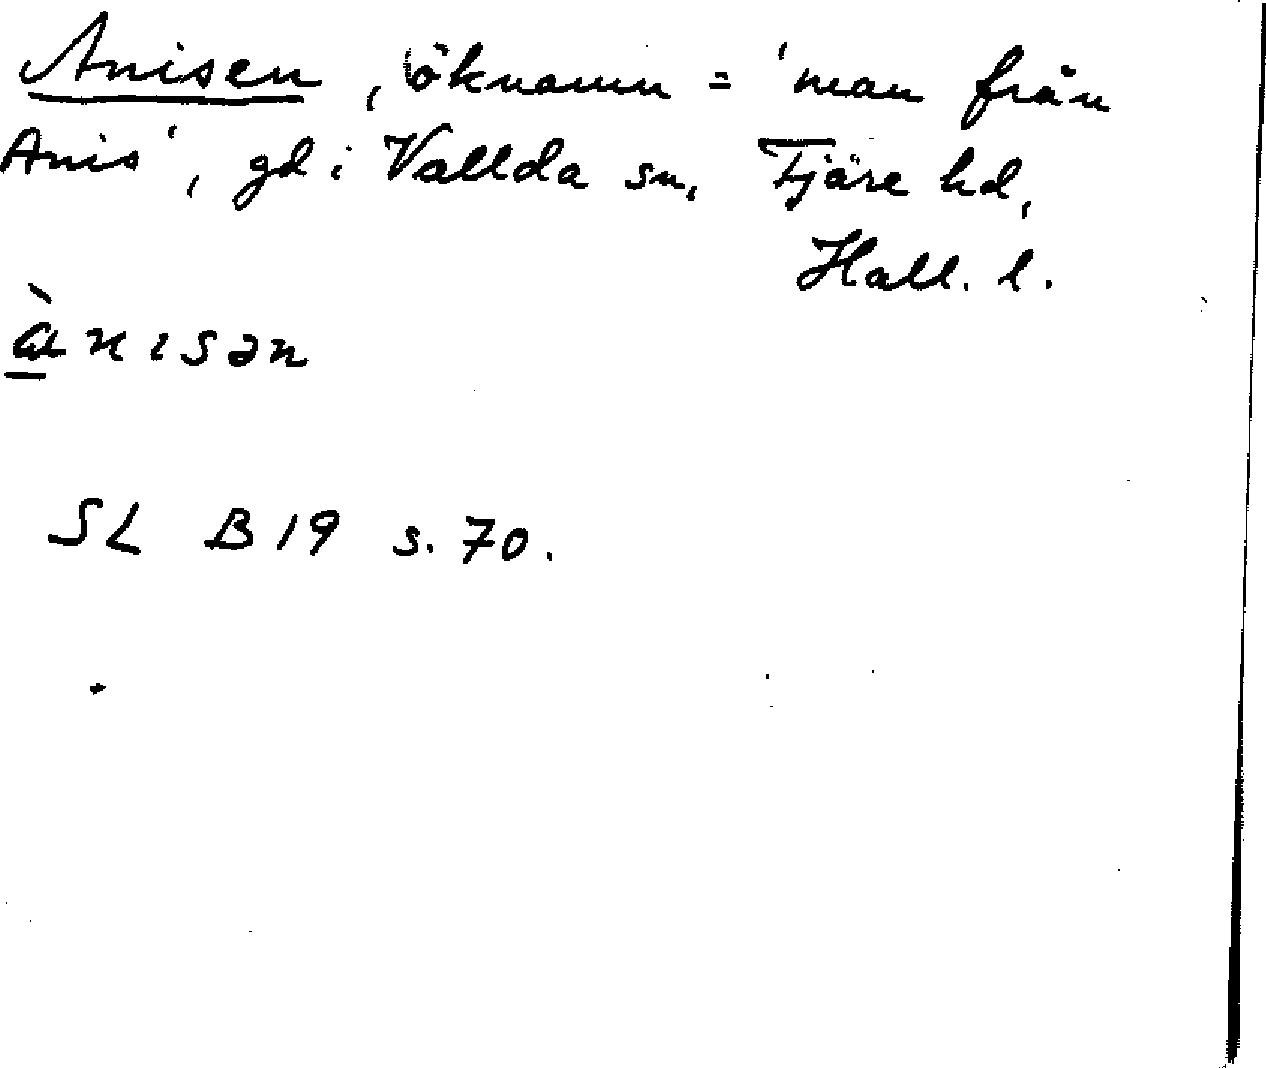 Anisen, öknamn = 'man från
Anis', gd i Vallda sn, Fjäre hd,
Hall. l.
ɑ̱̀nısən
SL B19 s. 70.